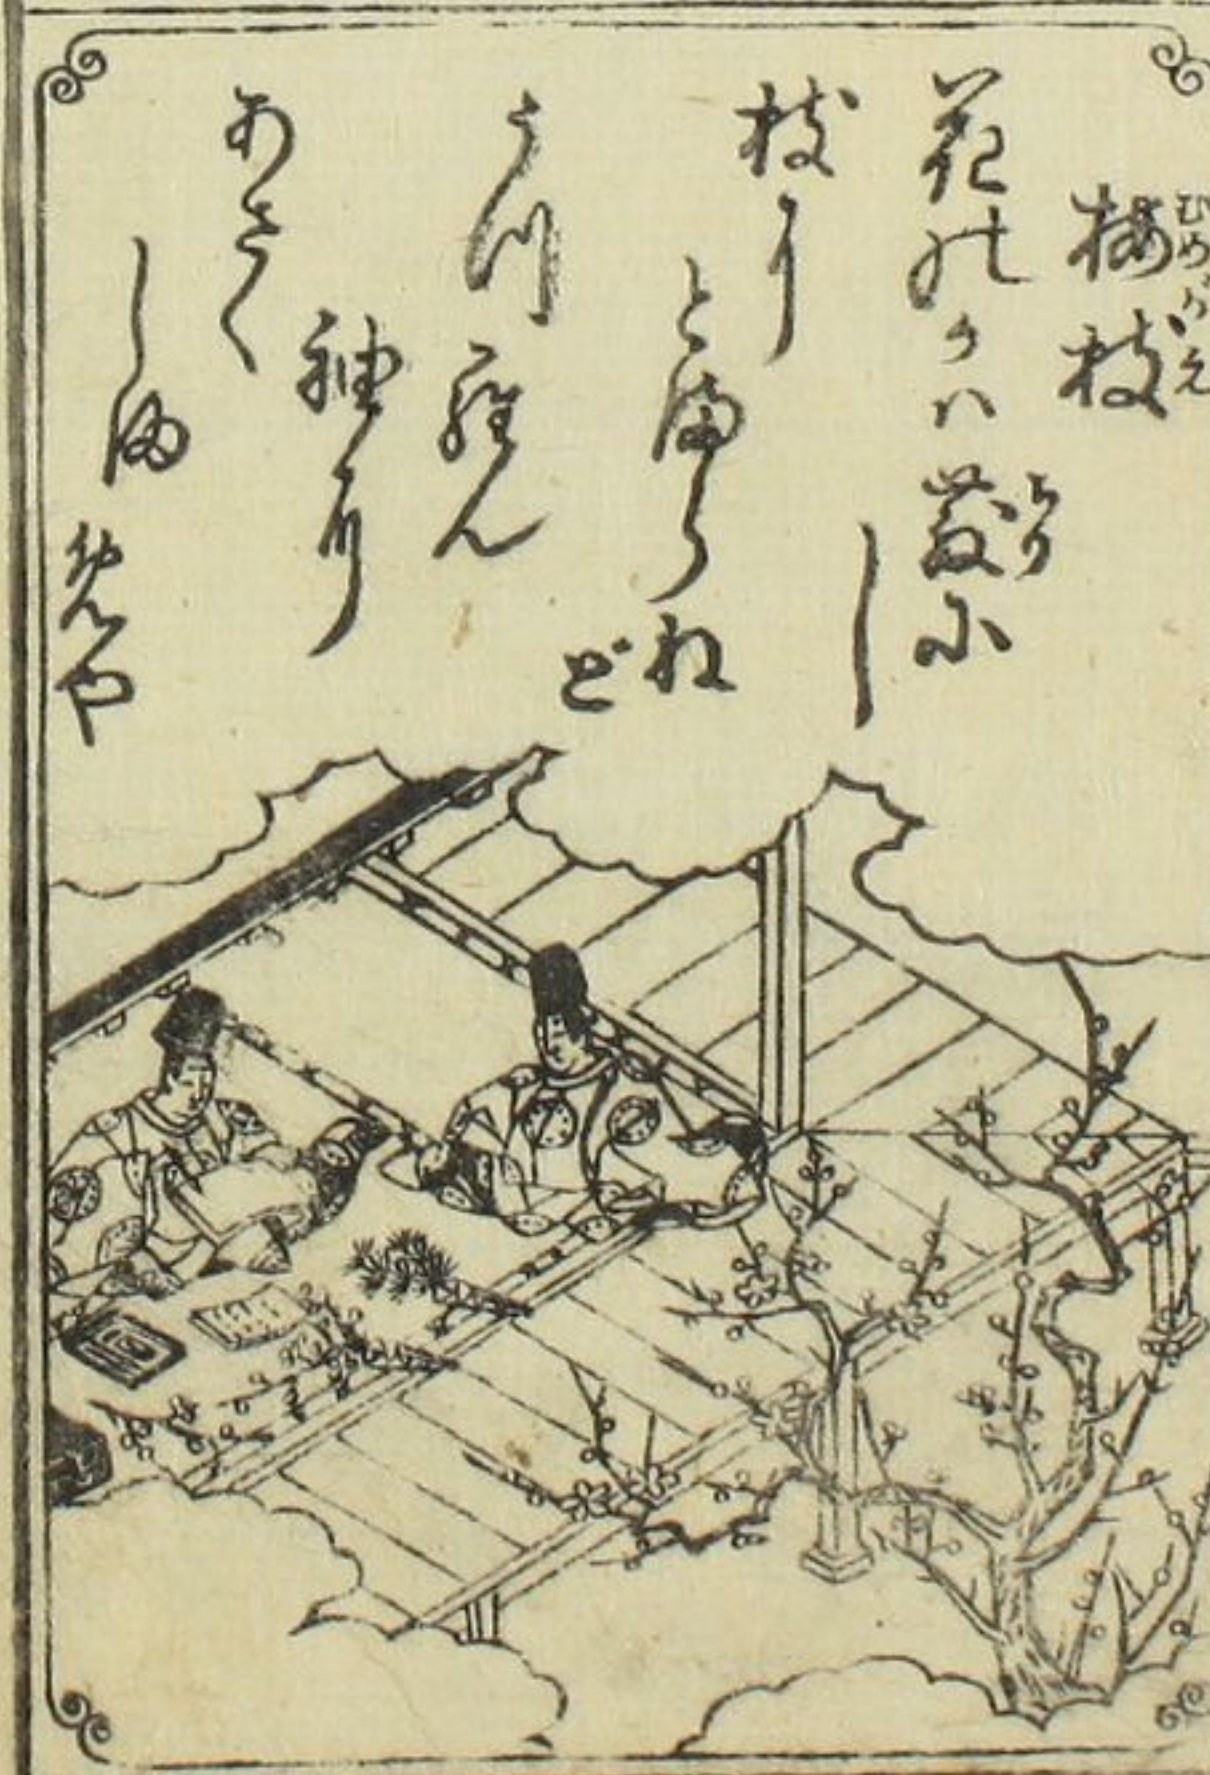 梅枝
むめがえ
花のかは散に
ちり
し
枝に
とまらね
ど
うつらん
袖に
あさく
しま
めや